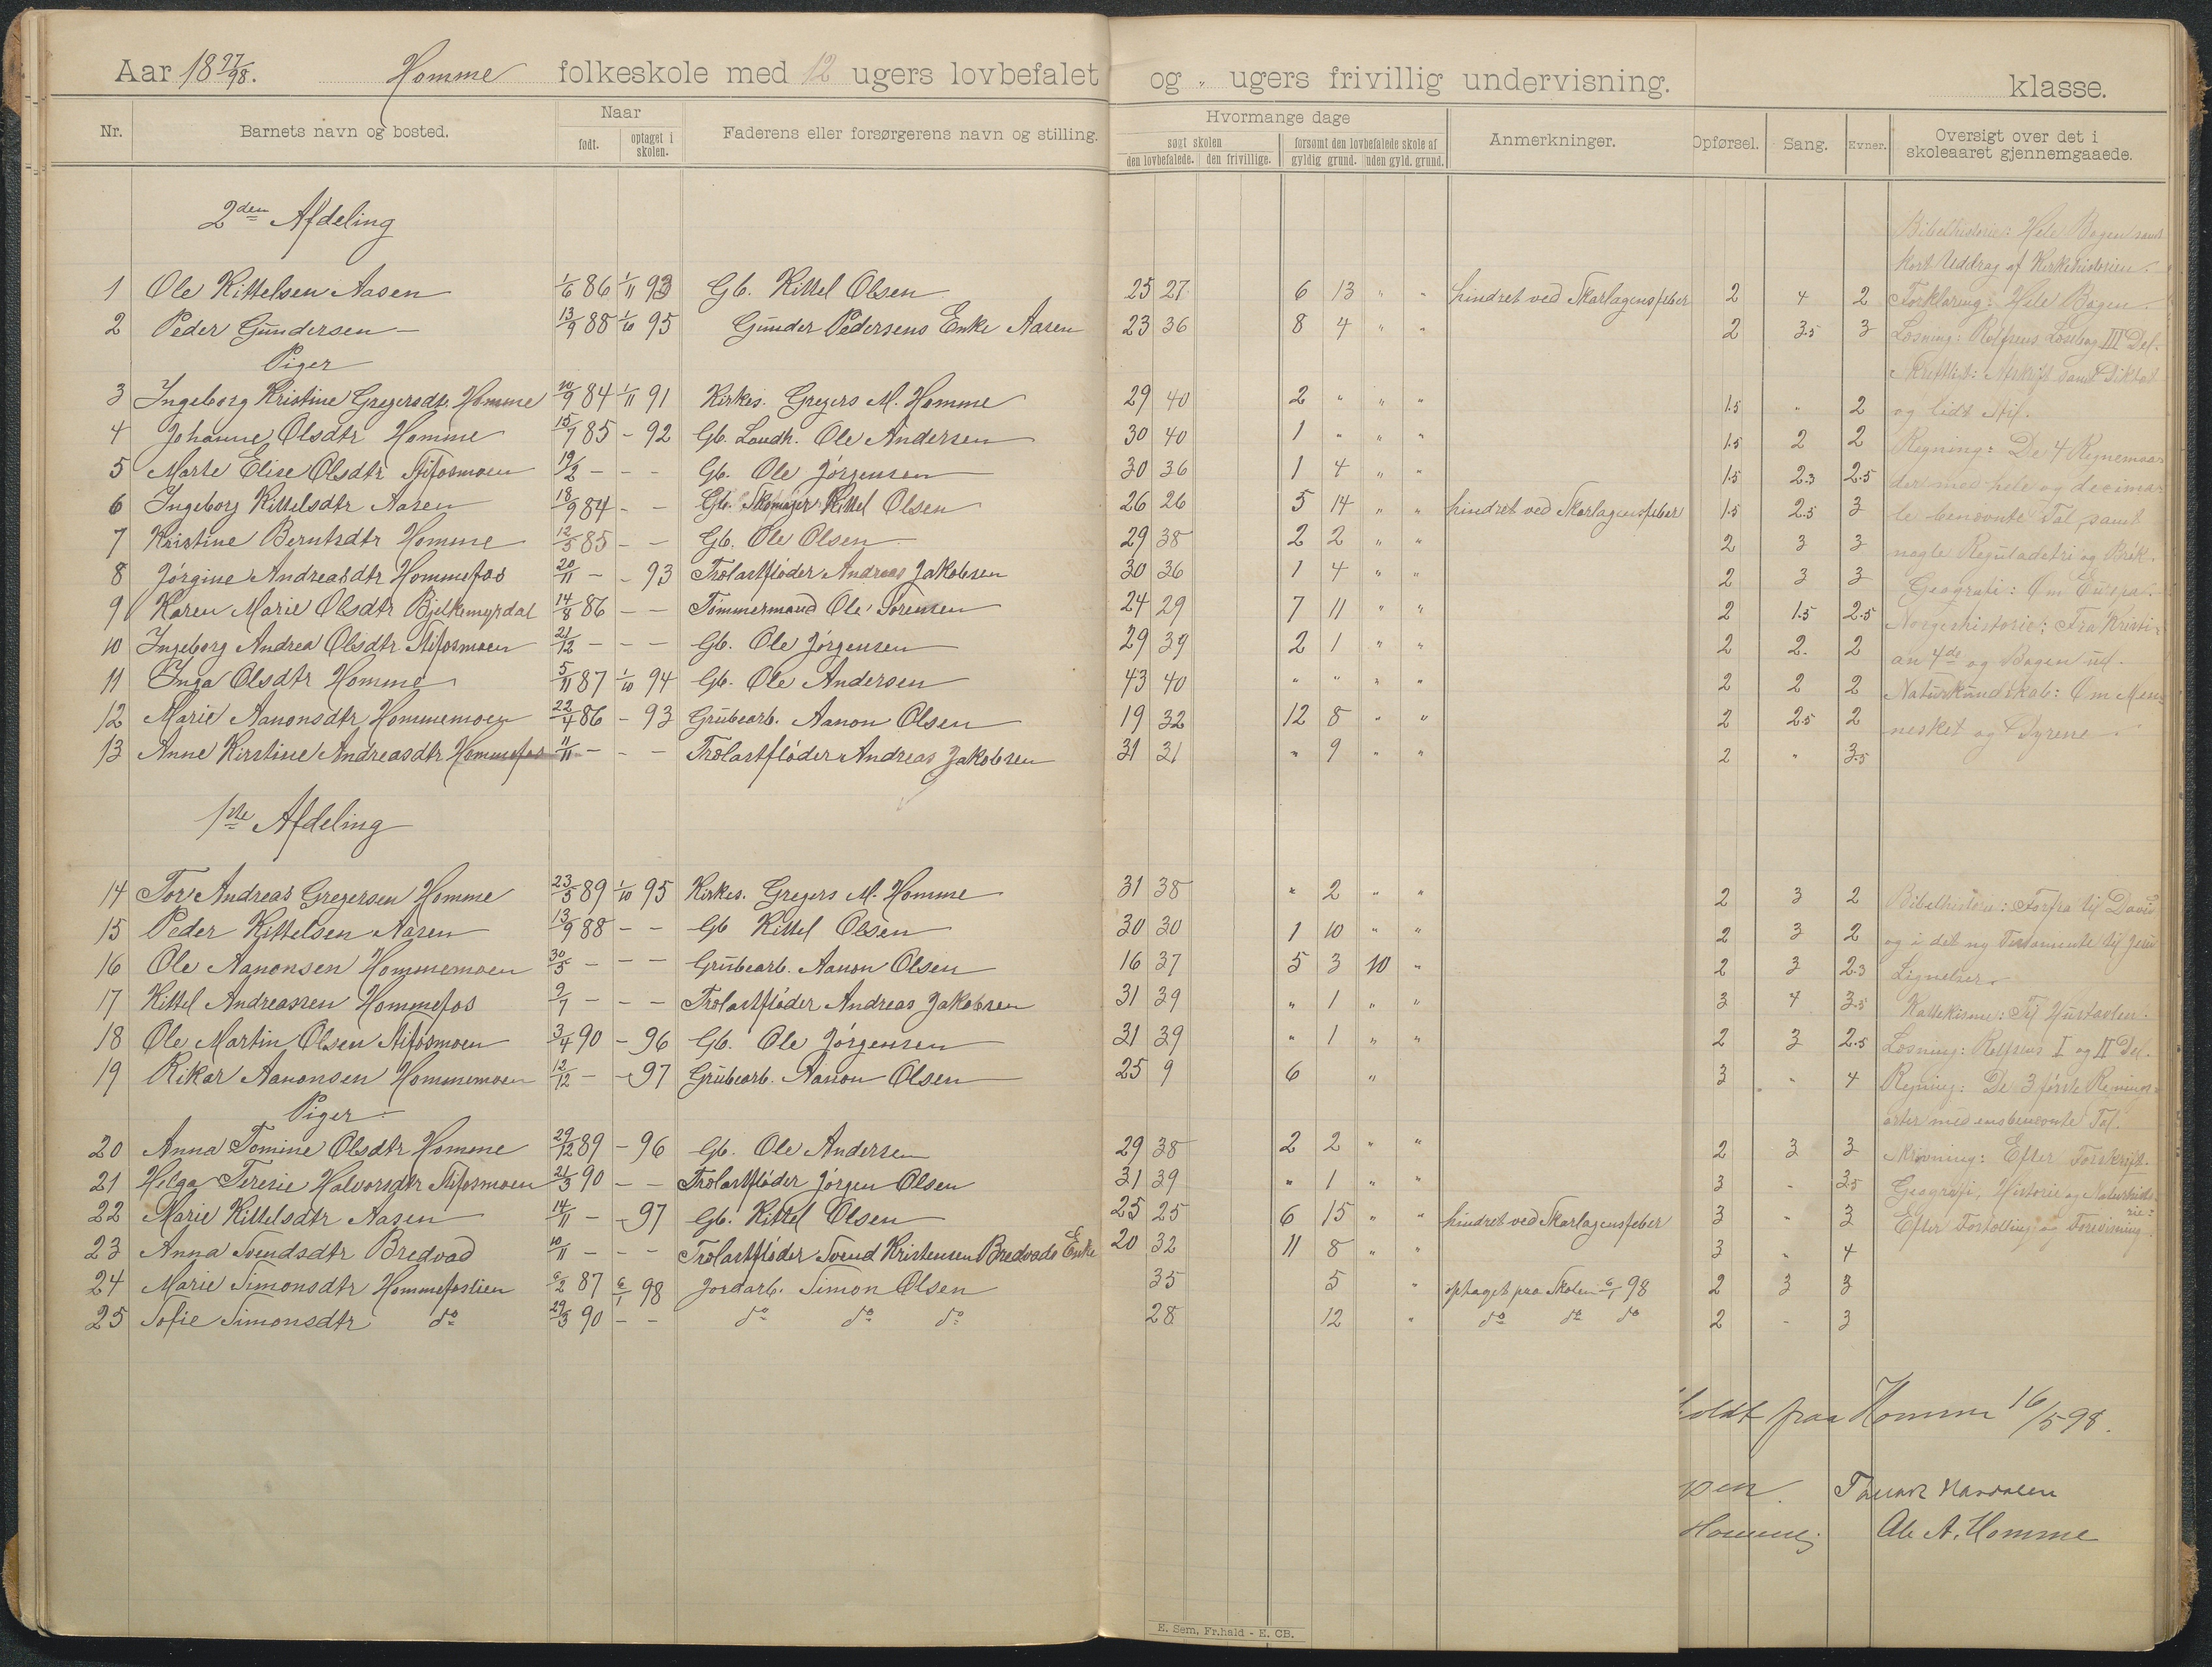 Aar 18 97/98. Homme folkeskole med 12 ugers lovbefalet og " ugers frivillig undervisning. klasse.
Nr. Barnets navn og bosted. Naar født. optaget i skolen. Faderens eller forsørgerens navn og stilling. Hvormange dage søgt skolen den lovbefalede. den frivillige. forsømt den lovbefalede skole af gyldig grund. uden gyld. grund. Anmerkninger. Opførsel. Sang. Evner. Oversigt over det i skoleaaret gjennemgaaede.
2den Afdeling
1 Ole Kittelsen Aasen 1/6 86 1/11 93 Gb. Kittel Olsen 25 27 6 13 " " hindret ved Skarlagensfeber 2 4 2
2 Peder Gundersen — 13/9 88 1/10 95 Gunder Pedersens Enke Aasen 23 36 8 4 " " 2 3.5 3
Piger
3 Ingeborg Kristine Gregersdtr. Homme 10/9 84 1/11 91 Kirkes. Gregers M. Homme 29 40 2 " " " 1.5 " 2
4 Johanne Olsdtr Homme 15/7 85 - 92 Gb. Landh. Ole Andersen 30 40 1 " " " 1.5 2 2
5 Marte Elise Olsdtr Stifosmoen 19/2 - - - Gb. Ole Jørgensen 30 36 1 4 " " 1.5 2.3 2.5
6 Ingeborg Kittelsdtr Aasen 18/9 84 - - Gb. Skomager Kittel Olsen 26 26 5 14 " " hindret ved Skarlagensfeber 1.5 2.5 3
7 Kristine Berntsdtr Homme 12/5 85 - - Gb. Ole Olsen 29 38 2 2 " " 2 3 3
8 Jørgine Andreasdtr Hommefos 20/11 - - 93 Trælastfløder Andreas Jakobsen 30 36 1 4 " " 2 3 3
9 Karen Marie Olsdtr Bjelkemyrdal 14/8 86 - - Tømmermand Ole Torensen 24 29 7 11 " " 2 1.5 2.5
10 Ingeborg Andrea Olsdtr Stifosmoen 21/12 - - - Gb. Ole Jørgensen 29 39 2 1 " " 2 2. 2
11 Inga Olsdtr Homme 5/11 87 1/10 94 Gb. Ole Andersen 43 40 " " " " 2 2 2
12 Marie Aanonsdtr Hommemoen 22/4 86 - 93 Grubearb. Aanon Olsen 19 32 12 8 " " 2 2.5 2
13 Anne Kirstine Andreasdtr Hommefos 11/11 - - - Trælastfløder Andreas Jakobsen 31 31 " 9 " " 2 " 3.5
Bibelhistorie: Hele Bogen samt
kort Uddrag af Kirkehistorien.
Forklaring: Hele Bogen.
Læsning: Rolfsens Læsebog III Del.
Skriftligt: Afskrift samt Diktat
og lidt Stil.
Regning: De 4 Regnemaa-
der med hele og decima-
le benævnte Tal, samt
nogle Reguladetri og Brøk.
Geografi: Om Europa.
Norgeshistorie: Fra Kristi-
an 4de og Bogen ud.
Naturkundskab: Om Men-
nesket og Dyrene.
1ste Afdeling
14 Tor Andreas Gregersen Homme 23/5 89 1/10 95 Kirkes. Gregers M. Homme 31 38 " 2 " " 2 3 2
15 Peder Kittelsen Aasen 13/9 88 - - Gb Kittel Olsen 30 30 1 10 " " 2 3 2
16 Ole Aanonsen Hommemoen 30/5 - - - Grubearb. Aanon Olsen 16 37 5 3 10 " 2 3 2.3
17 Kittel Andreassen Hommefos 9/7 - - - Trælastfløder Andreas Jakobsen 31 39 " 1 " " 3 4 3.5
18 Ole Martin Olsen Stifosmoen 3/4 90 - 96 Gb. Ole Jørgensen 31 39 " 1 " " 2 3 2.5
19 Rikar Aanonsen Hommemoen 12/12 - - 97 Grubearb. Aanon Olsen 25 9 6 " 3 " 4
Piger
20 Anna Tomine Olsdtr Homme 29/12 89 - 96 Gb. Ole Andersen 29 38 2 2 " " 2 3 3
21 Helga Teresie Halvorsdtr Stifosmoen 21/3 90 - - Trælastfløder Jørgen Olsen 31 39 " 1 " " 3 - 3.5
22 Marie Kittelsdtr Aasen 14/11 - - 97 Gb. Kittel Olsen 25 25 6 15 " " hindret ved Skarlagensfeber 3 " 3
23 Anna Svendsdtr Bredvad 10/11 - - - Trælastfløder Svend Kristensen Bredvads Enke 20 32 11 8 " " 3 " 4
24 Marie Simonsdtr Hommefoslien 6/2 87 6/1 98 Jordarb. Simon Olsen 35 5 " optaget paa Skolen 6/1 98 2 3 3
25 Sofie Simonsdtr do 29/3 90 - - do do do 28 12 " do do do 2 - 3
Bibelhistorie: Forfra til David
og i det ny Testamente til Jesu
Lignelser.
Kattekisme: Til Hustavlen.
Læsning: Rolfsens I og II Del.
Regning: De 3 første Regnings-
arter med ensbenævnte Tal.
Skrivning: Efter Forskrift.
Geografi, Historie og Naturhisto-
rie:
Efter Fortælling og Forevisning.
holdt paa Homme 16/5 98.
Homme. Ole A. Homme
E. Sem, Fr.hald - E. CB.